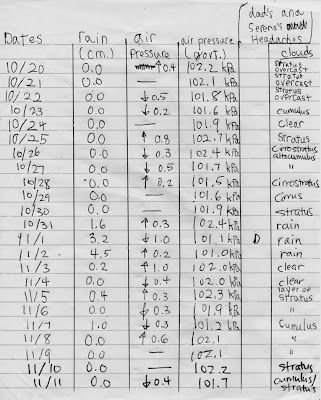 dad's and
Serena's
Headaches
Dates rain air air pressure
(cm.) Pressure (govt.) clouds
10/20 0.0 ↑0.4 102.2 kPa stratus overcast
10/21 0.0 — 102.1 kPa stratus overcast
10/22 0.0 ↓0.5 101.8 kPa stratus overcast
10/23 0.0 ↓0.2 101.6 kPa cumulus
10/24 0.0 — 101.9 kPa clear
10/25 0.0 ↑0.8 102.7 kPa Stratus
10/26 0.0 ↓0.3 102.4 kPa Cirrostratus altocumulus
10/27 0.0 ↓0.5 101.7 kPa "
10/28 0.0 ↑0.2 101.5 kPa Cirrostratus
10/29 0.0 — 101.6 kPa Cirrus
10/30 0.0 — 101.9 kPa stratus
10/31 1.6 ↑0.3 102.4 kPa rain
11/1 3.2 ↓1.0 101.1 kPa D rain
11/2 4.5 ↑0.2 101.0 kPa rain
11/3 0.2 ↑1.0 102.0 kPa clear
11/4 0.0 ↓0.4 102.0 kPa clear
11/5 0.4 ↑0.3 102.3 kPa layer of stratus
11/6 0.0 ↓0.3 101.9 kPa "
11/7 1.0 ↓0.3 101.2 kPa Cumulus
11/8 0.0 ↑0.6 102.1 "
11/9 0.0 — 102.1 "
11/10 0.0 — 102.2 stratus
11/11 0.0 ↓0.4 101.7 cumulus/stratus